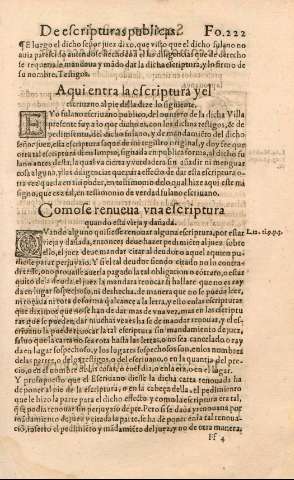 De escripturas publicas. Fo.222
¶ E luego el dicho señor juez dixo, que visto que el dicho fulano no
avia parescido auiendose hecho las diligencias que de derecho
se requeria le mandaua y mãdo dar la dicha escriptura, y lo firmo de
su nombre. Testigos.
Aqui entra la escriptura y el
escriuano al pie della dize lo siguiente.
E Yo fulano escriuano publico, del numero de la dicha Villa
presente fuy a lo que dicho es, con los dichos testigos, & de
pedimiento del dicho fulano, y de mandamiẽto del dicho
señor juez, esta escriptura saque de mi registro original, y doy fee que
otra tal escriptura di en limpio, signada en publica forma, al dicho fu
lano antes desta, la qual va cierta y verdadera sin añadir ni mengua
cosa alguna, y las diligencias que para effecto de dar esta escriptura o-
tra vez que
ma, que es a tal, en testimonio de verdad fulano escriuano.
Como se renueua vna escriptura
quando esta vieja y dañada.
QVando alguno quisiesse renouar alguna escriptura, por estar
vieja y dañada, entonces deue hazer pedimiẽto al juez sobre
ello, el juez deue mandar citar al deudor o aquel a quien pu-
diesse parar perjuyzio. Y si el tal deudor siendo citado no lo contra-
dixesse, o no prouasse auerla pagado la tal obligacion o cõtrato, o estar
quito de la deuda, el juez la mandara renouar si hallare que no es ray
da en lugar sospechoso, ni deshecha, de manera que no se pueda leer,
ni rota
que diximos que no se han de dar mas de vna vez, mas en las escriptu
ras que se pueden, dar muchas vezes ha se de mandar renouar, y el es-
criuano la puede renouar la tal escriptura sin mandamiento de juez,
saluo que la carta no sea rota hasta las letras, o no sea cancelado o ray
da en lugar sospechoso, y los lugares sospechosos son, en los nombres
de las partes, o de los testigos, o del escriuano, o en la quantia del pre-
cio, o en el nombre de la cosa, o en el dia, o en la era, o en el lugar.
Y presupuesto que el Escriuano diesse la dicha carta renouada ha
de poner al pie de la escriptura, o en la cabeça della, el pedimiento
que le hizo la parte para el dicho effecto y como la escriptura era tal,
que podia renouar sin perjuyzio de parte. Pero si se dada y renouada por
mandamiento de juez y citada la parte, se ha de poner en la tal reno-
uaciõ, inserto el pedimiẽto y mãdamiẽto del juez, y no de otra manera,
Ff 4